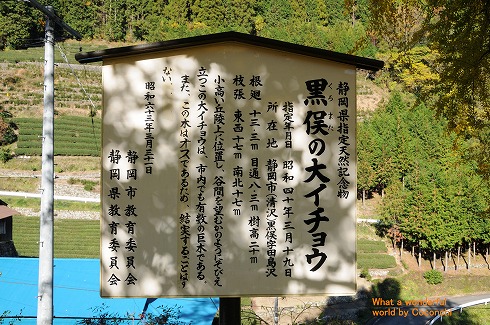 静岡県指定天然記念物
くろまた
黒俣の大イチョウ
指定年月日 昭和四十年三月十九日
所在地 静岡市清沢黒俣字田島沢
根廻 十三・三m 目通 八・三m 樹高 二十m
枝張 東西 十七m 南北 十七m
小高い丘陵上に位置し、谷間を望むかのようにそびえ
立つこの大イチョウは、市内でも有数の巨木である。
また、この木はオスであるため、結実することはす
ない。
昭和六三年三月三一日
静岡市教育委員会
静岡県教育委員会
What a wonderful
world by Cocono